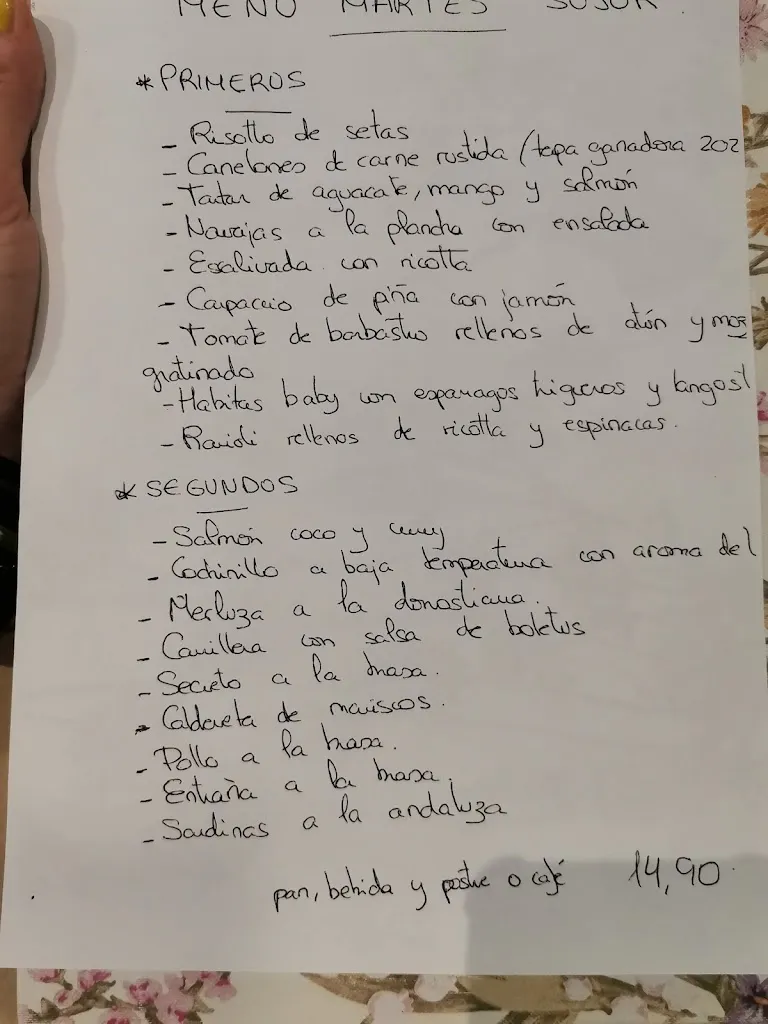 MENÚ MARTES
* PRIMEROS
- Risotto de setas
- Canelones de carne rustida (tapa ganadora 202
- Tartar de aguacate, mango y salmón
- Navajas a la plancha con ensalada
- Escalivada con ricotta
- Carpaccio de piña con jamón
- Tomate de barbastro rellenos de atún y moz
gratinado
- Habitas baby con esparragos trigueros y langost
- Ravioli rellenos de ricotta y espinacas.
* SEGUNDOS
- Salmón coco y curry
- Cochinillo a baja temperatura con aroma del
- Merluza a la donostiarra.
- Carrillera con salsa de boletus
- Secreto a la brasa.
- Caldereta de mariscos.
- Pollo a la brasa.
- Entraña a la brasa.
- Sardinas a la andaluza
pan, bebida y postre o café 14,90